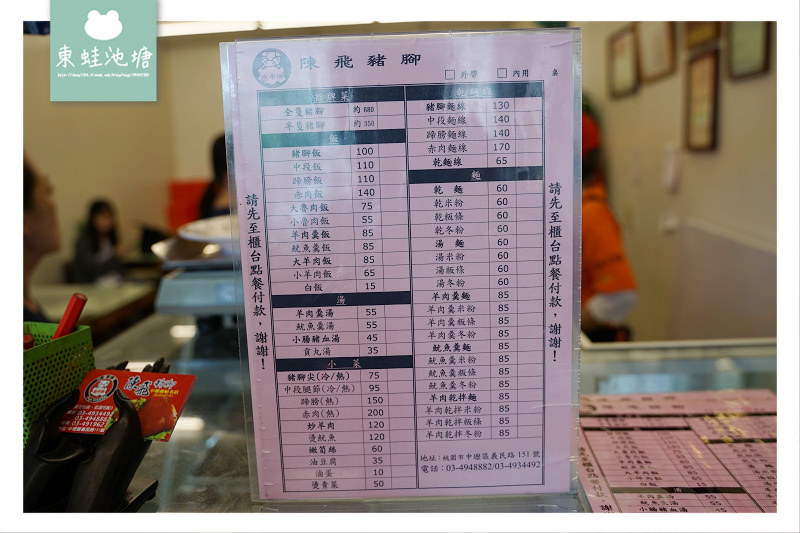 東蛙池塘
陳飛豬腳
□ 外帶 □ 內用 桌
請先至櫃台點餐付款，謝謝！
招牌菜
全隻豬腳 約680
半隻豬腳 約350
飯
豬腳飯 100
中段飯 110
蹄膀飯 110
赤肉飯 140
大魯肉飯 75
小魯肉飯 55
羊肉羹飯 85
魷魚羹飯 85
大羊肉飯 85
小羊肉飯 65
白飯 15
湯
羊肉羹湯 55
魷魚羹湯 55
小腸豬血湯 45
貢丸湯 35
小菜
豬腳尖(冷/熱) 75
中段腿節(冷/熱) 95
蹄膀(熱) 150
赤肉(熱) 200
炒羊肉 120
燙魷魚 120
嫩筍絲 60
油豆腐 35
滷蛋 10
燙青菜 50
乾麵線
豬腳麵線 130
中段麵線 140
蹄膀麵線 140
赤肉麵線 170
乾麵線 65
麵
乾麵 60
乾米粉 60
乾粄條 60
乾冬粉 60
湯麵 60
湯米粉 60
湯粄條 60
湯冬粉 60
羊肉羹麵 85
羊肉羹米粉 85
羊肉羹粄條 85
羊肉羹冬粉 85
魷魚羹麵 85
魷魚羹米粉 85
魷魚羹粄條 85
魷魚羹冬粉 85
羊肉乾拌麵 85
羊肉乾拌米粉 85
羊肉乾拌粄條 85
羊肉乾拌冬粉 85
地址: 桃園市中壢區義民路151號
電話: 03-4948882/03-4934492
請先至櫃台點餐付款，謝謝！
陳飛豬腳